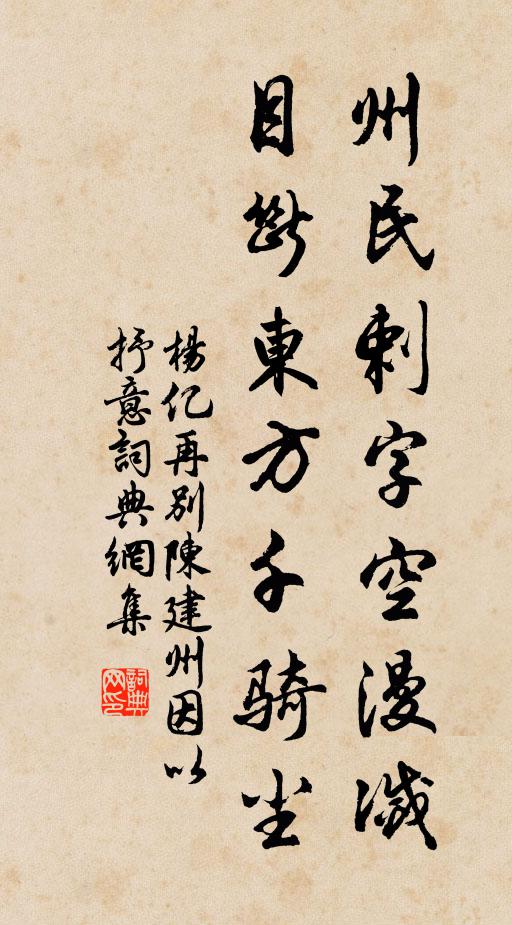 州民刺字空漫滅
目斷東方千騎尘
楊亿再别陳建州因以
抒意詞典網集
詞典
网印